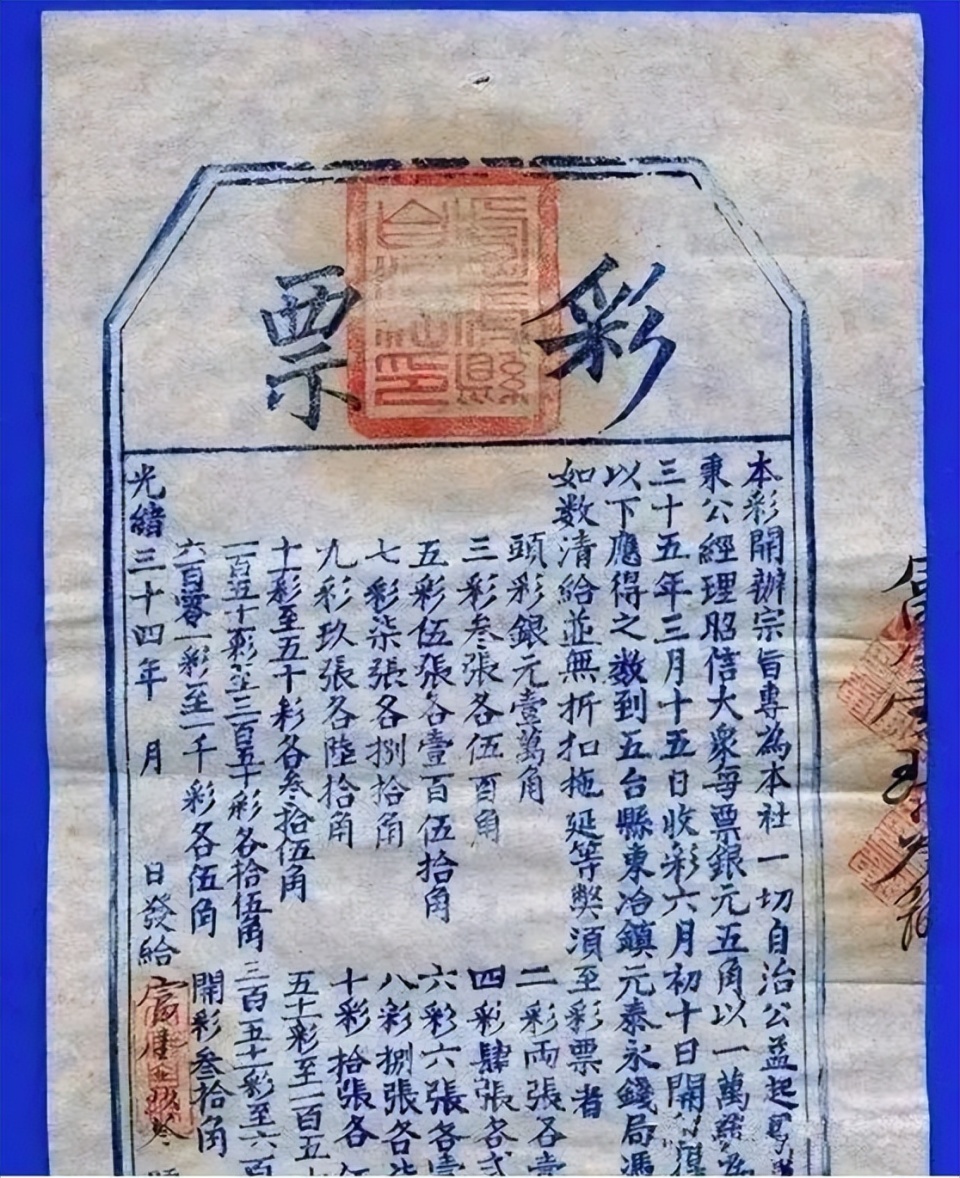 彩票
本彩開辦宗旨專為本社一切自治公益起
秉公經理昭信大衆每票銀元五角以一萬
三十五年三月十五日收彩六月初十日開
以下應得之数到五台縣東冶鎮元泰永錢局憑
如数清給並無折扣拖延等弊須至彩票者
頭彩銀元壹萬角
二彩両張各壹
三彩叁張各伍百角
四彩肆張各弍
五彩伍張各壹百伍拾角
六彩六張各壹
七彩柒張各捌拾角
八彩捌張各柒
九彩玖張各陸拾角
十彩拾張各伍
十一彩至五十彩各叁拾伍角
五十一彩至一百五十
一百五十一彩至三百五十彩各拾伍角
三百五十一彩至六百
六百零一彩至一千彩各伍角
開彩叁拾角
光緒三十四年 月 日發給